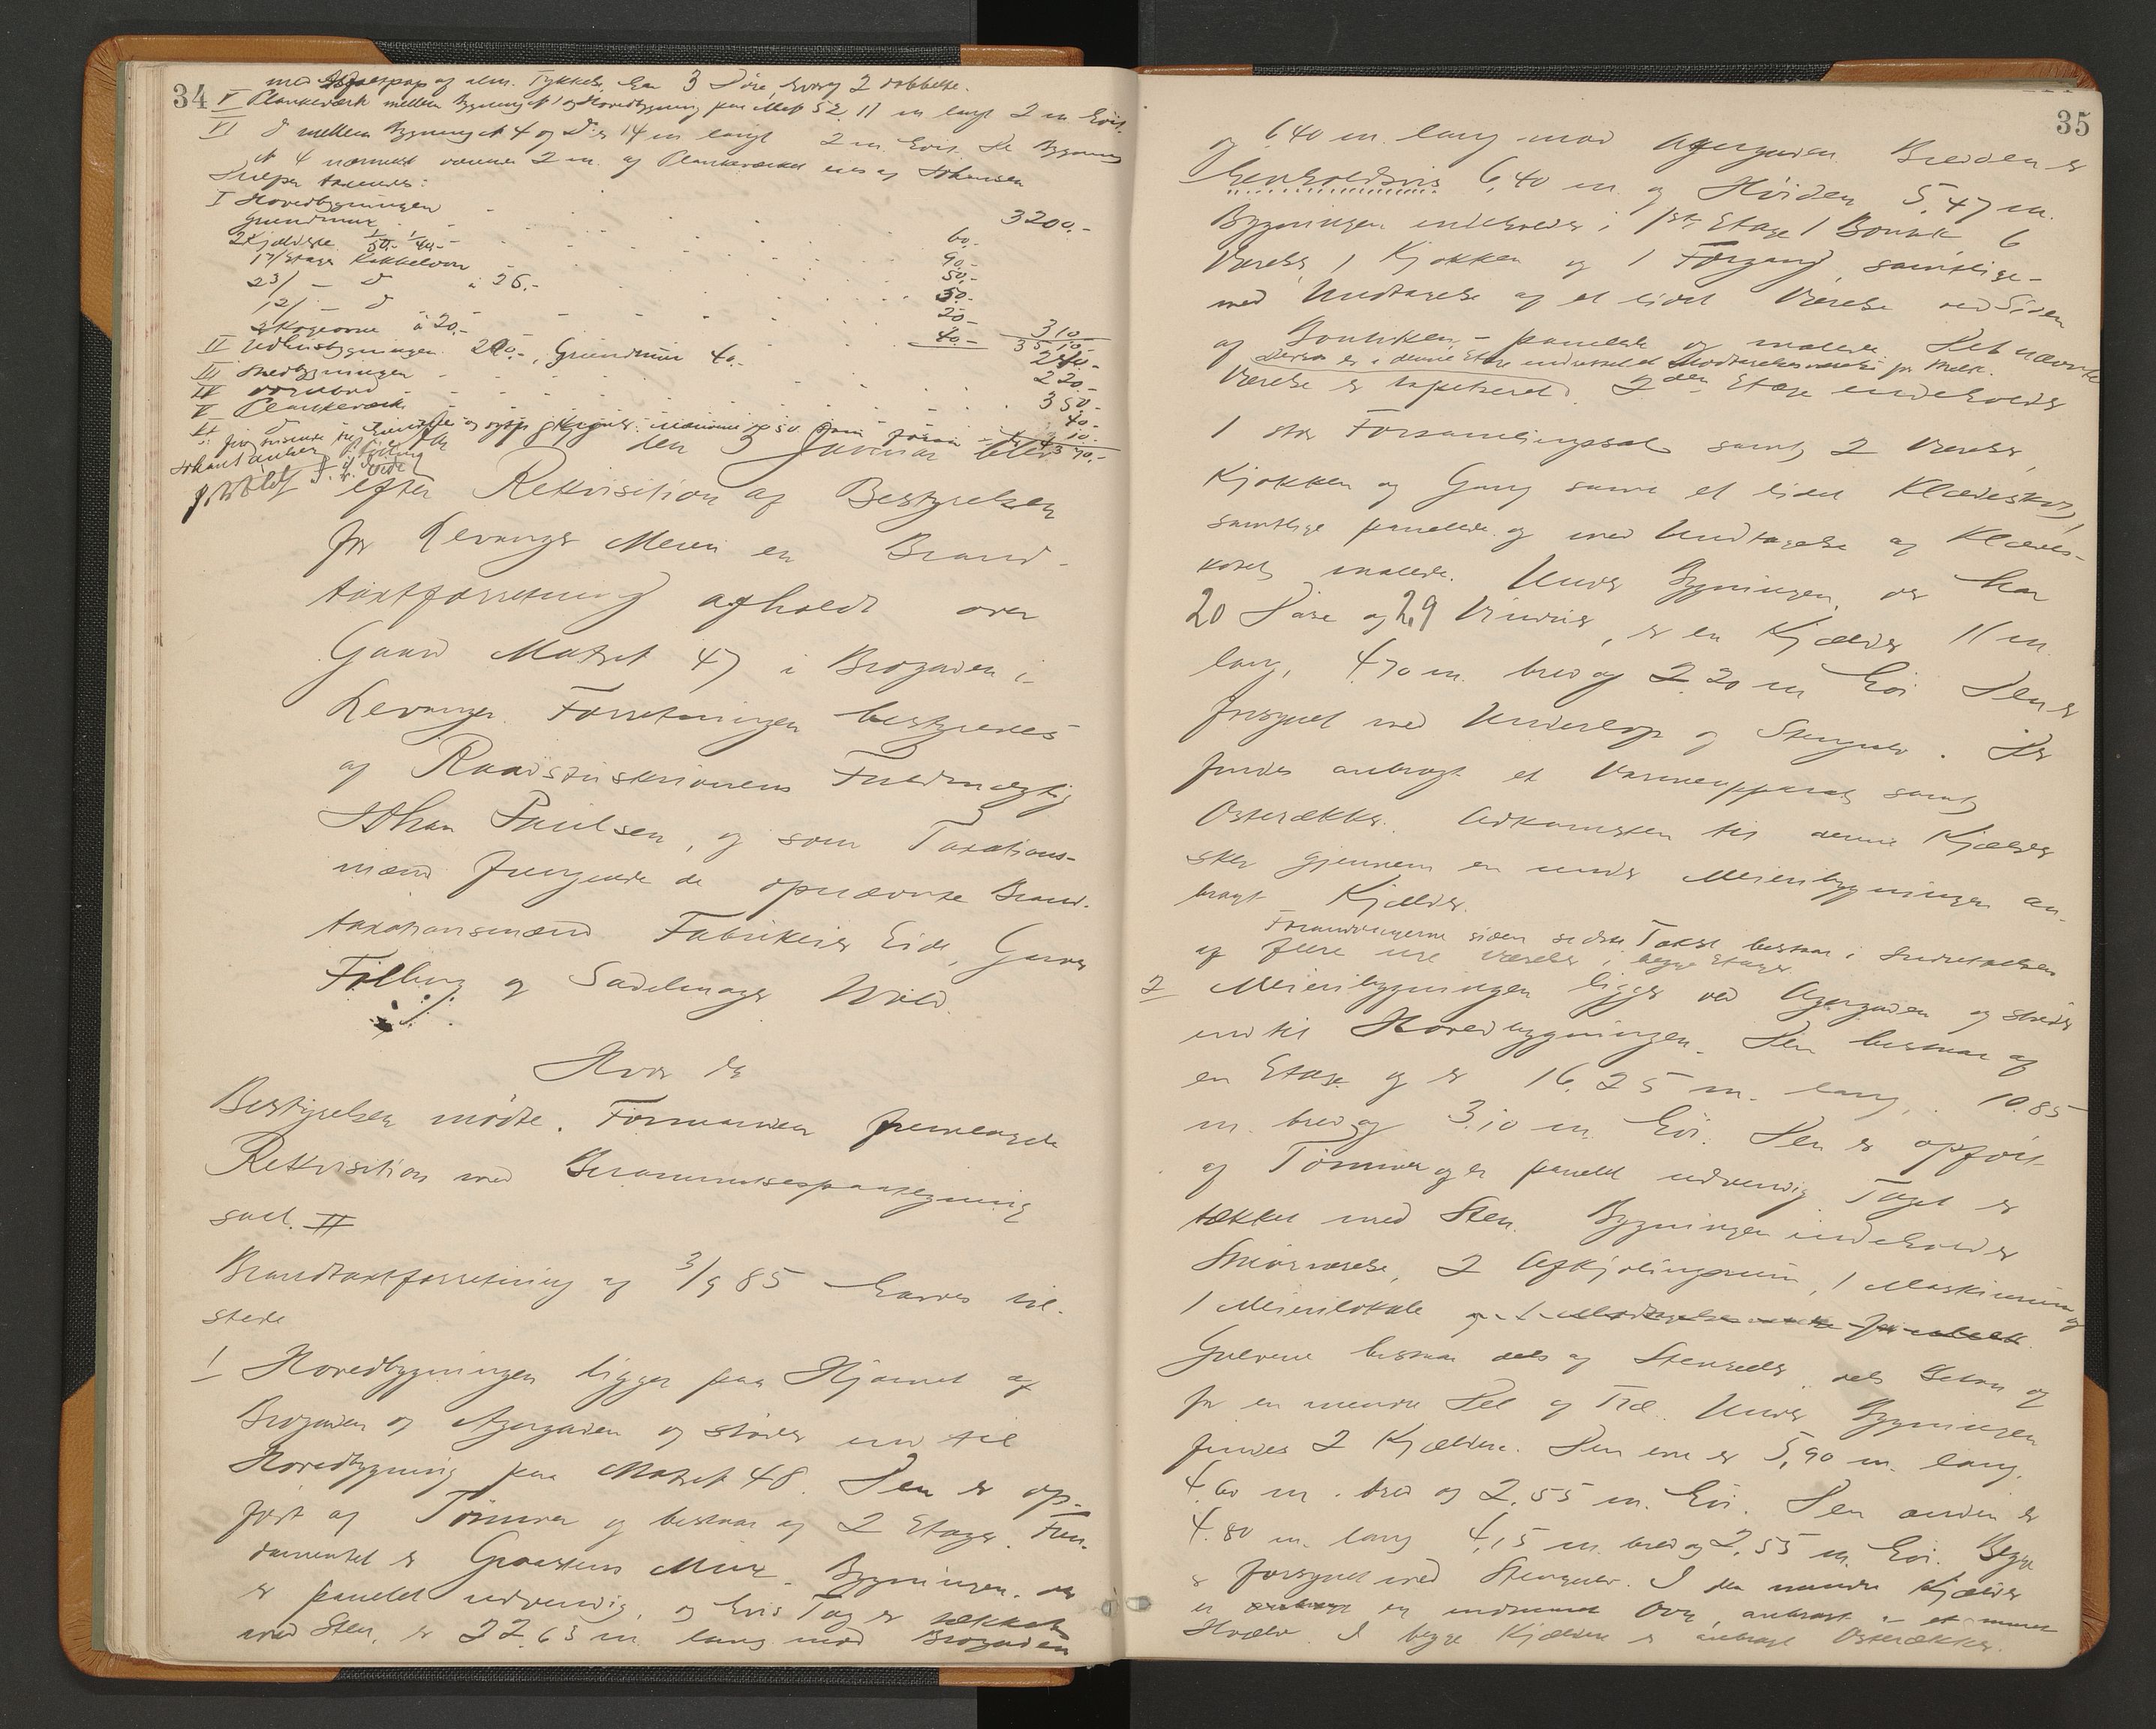 34
med af alm. Tykkelse, har 3 Döre, hvoraf 2 dobbelte.
V Plankeværk mellem Bygning № 1 og Hovedbygning paa Mat№ 52, 11 m langt 2 m høit.
VI d mellem Bygning № 4 og 14 m langt 2 m. høit. De Bygning
№ 4 nærmest værende 2 m. af Plankeværket eies af Johansen
takseredes:
I Hovedbygningen 3200.-
Grundmur 60.-
2 Kjældere 1/50.- 1/40.- 90.-
1 Etages Kakkelovn 50.-
2 3/ - d à 25.- 50.-
1 2/ - d 20.-
2 Kogeovne à 20.- 40.- 310.-
3510.-
II Udhusbygningen 200.-, Grundmur 40.- 240.-
III Skedbygningen 220.-
IV 350.-
V Plankeværk 40.-
VI d 10.-
den 3 Januar blev
efter Rekvisition af Bestyrelsen
for Levanger Meieri en Brand-
taxtforretning afholdt over
Gaard Matr№ 47 i Brogaden i
Levanger. Forretningen bestyredes
af Raadstuskriverens Fuldmægtig
Johan Paulsen, og som Taxations-
mænd fungerede de opnævnte Brand-
taxationsmænd Fabrikeier Eide, Garver
Filling og Sadelmager Wold.
Hvor da
Bestyrelsen mödte. Formanden fremlagde
Rekvisition med Berammelsespaategning
saal. II
Brandtaxtforretning af 3/9 85 havdes til-
stede
1 Hovedbygningen ligger paa Hjörnet af
Brogaden og Agergaden og stöder ind til
Hovedbygning paa Matr№ 48. Den er op-
fört af Tömmer og bestaar af 2 Etager. Fun-
damentet er Graastens Mur. Bygningen, der
er panelet udvendig, og hvis Tag er tækket
med Sten, er 22,65 m. lang mod Brogaden
35
og 6,40 m. lang mod Agergaden. Bredden er
henholdsvis 6,40 m. og Höiden 5,47 m.
Bygningen indeholder i 1ste Etage 1 Boutik 6
Værelser, 1 Kjökken og 1 Forgang, samtlige
med Undtagelse af et lidet Værelse ved Siden
af Boutiken - panelede og malede. Det nævnte
Desuden er i denne Etage indrettet et Modtagelsesværelse for Melk.
Værelse er tapetseret. 2den Etage indeholder
1 stor Forsamlingssal samt 2 Værelser,
Kjökken og Gang samt et lidet Klædeskot,
samtlige panelede og med Undtagelse af Klædes-
kottet malede. Under Bygningen, der har
20 Döre og 29 Vinduer, er en Kjælder 11 m.
lang, 4,70 m. bred og 2,20 m höi. Den er
forsynet med Underlop og Stengulv. Der
findes anbragt et Varmeapparat samt
Osterækker. Adkomsten til denne Kjælder
sker gjennem en under Meieribygningen an-
bragt Kjælder.
Forandringerne siden sidste Takst bestaar i Indretelsen
af flere nye Værelser i begge Etager.
2 Meieribygningen ligger ved Agergaden og stöder
ind til Hovedbygningen. Den bestaar af
en Etage og er 16,25 m. lang, 10,85
m. bred og 3,10 m. höi. Den er opfört
af Tömmer og er panelet udvendig. Taget er
tækket med Sten. Bygningen indeholder
Smörværelse, 2 Afkjölingsrum, 1 Maskinrum og
1 Meierilokale og 1 Modtagelsesværelse for Melk.
Gulvene bestaar dels af Stenheller, dels Beton og
for en mindre Del af Træ. Under Bygningen
findes 2 Kjældere. Den ene er 5,90 m. lang,
4,60 m. bred og 2,55 m. höi. Den anden er
4.80 m. lang 4,15 m. bred og 2,55 m. höi. Begge
er forsynet med Stengulv. I den mindre Kjælder
er en indmuret Ovn, anbragt i et muret
Hvælv. I begge Kjældere er anbragt Osterækker.